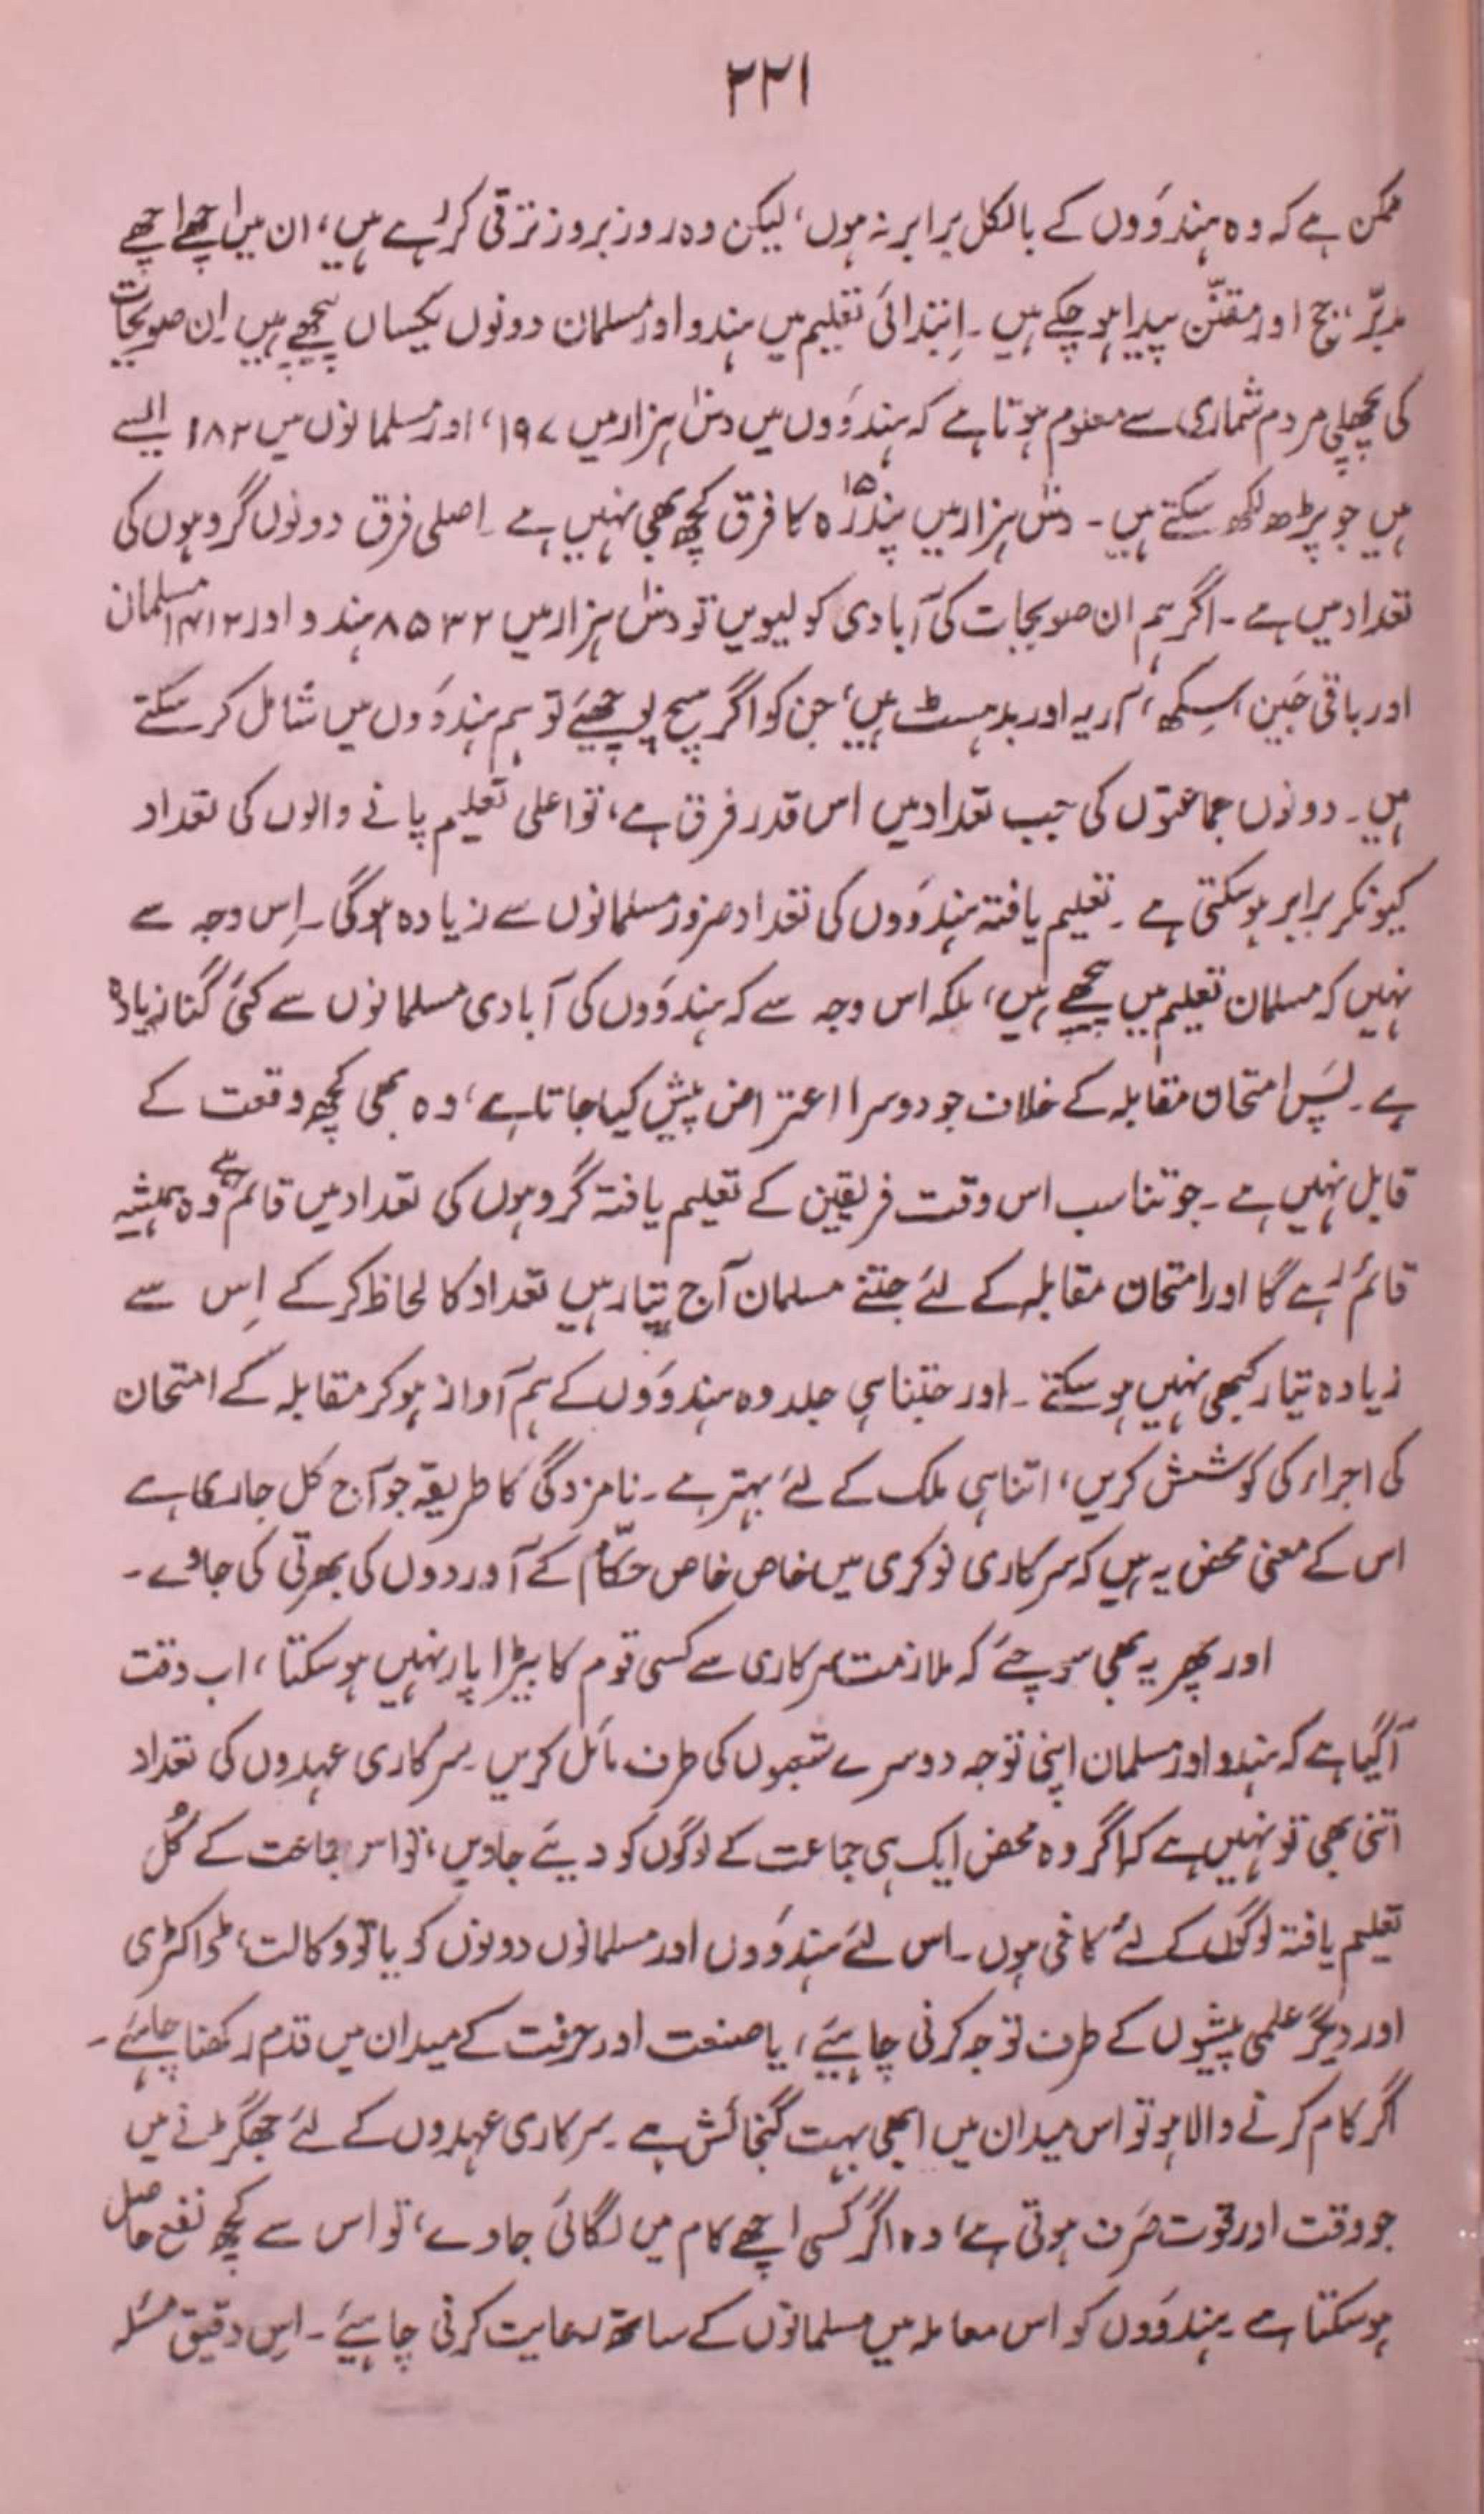 ۲۲۱
ممکن ہے کہ وہ ہندوَوں کے بالکل برابر نہ ہوں، لیکن وہ روز بروز ترقی کر رہے ہیں، ان میں اچھے اچھے
مدبّر، جج اور مقنّن پیدا ہو چکے ہیں ۔ اِبتدائی تعلیم میں ہندو اور مسلمان دونوں یکساں پیچھے ہیں ۔ اِن صوبجات
کی پچھلی مردم شماری سے معلوم ہوتا ہے کہ ہندوَوں میں دس ہزار میں ۱۹۷، اور مسلمانوں میں ۱۸۲ ایسے
ہیں جو پڑھ لکھ سکتے ہیں ۔ دس ہزار میں پندرہ ۱۵ کا فرق کچھ بھی نہیں ہے ۔ اصلی فرق دونوں گروہوں کی
تعداد میں ہے ۔ اگر ہم ان صوبجات کی آبادی کو لیویں تو دس ہزار میں ۸۵۳۲ ہندو اور ۱۴۱۲ مسلمان
اور باقی جَین، سِکھ، آریہ اور بدھسٹ ہیں، جن کو اگر سچ پوچھئے تو ہم ہندوَوں میں شامل کر سکتے
ہیں ۔ دونوں جماعتوں کی جب تعداد میں اس قدر فرق ہے، تو اعلی تعلیم پانے والوں کی تعداد
کیونکر برابر ہو سکتی ہے ۔ تعلیم یافتہ ہندوَوں کی تعداد ضرور مسلمانوں سے زیادہ ہوگی ۔ اِس وجہ سے
نہیں کہ مسلمان تعلیم میں پیچھے ہیں، بلکہ اس وجہ سے کہ ہندوَوں کی آبادی مسلمانوں سے کئی گنا زیادہ
ہے ۔ پَس امتحان مقابلہ کے خلاف جو دوسرا اعتراض پیش کیا جاتا ہے، وہ بھی کچھ وقعت کے
قابل نہیں ہے ۔ جو تناسب اس وقت فریقین کے تعلیم یافتہ گروہوں کی تعداد میں قائم ہے وہ ہمیشہ
قائم رہے گا اور امتحان مقابلہ کے لئے جتنے مسلمان آج تیار ہیں تعداد کا لحاظ کر کے اِس سے
زیادہ تیار کبھی نہیں ہو سکتے ۔ اور جتنا ہی جلد وہ ہندوَوں کے ہم آواز ہو کر مقابلہ کے امتحان
کی اجراء کی کوشش کریں، اتنا ہی ملک کے لئے بہتر ہے ۔ نامزدگی کا طریقہ جو آج کل جاری ہے
اس کے معنی محض یہ ہیں کہ سرکاری نوکری میں خاص خاص حکّام کے آوردوں کی بھرتی کی جاوے ۔
اور پھر یہ بھی سوچئے کہ ملازمت سرکاری سے کسی قوم کا بیڑا پار نہیں ہو سکتا، اب وقت
آ گیا ہے کہ ہندو اور مسلمان اپنی توجہ دوسرے شعبوں کی طرف مائل کریں ۔ سرکاری عہدوں کی تعداد
اتنی بھی تو نہیں ہے کہ اگر وہ محض ایک ہی جماعت کے لوگوں کو دیئے جاویں، تو اس جماعت کے کُل
تعلیم یافتہ لوگوں کے لئے کافی ہوں ۔ اس لئے ہندوَوں اور مسلمانوں دونوں کو یا تو وکالت، ڈاکٹری
اور دیگر علمی پیشوں کے طرف توجہ کرنی چاہیئے، یا صنعت اور حرفت کے میدان میں قدم رکھنا چاہئے ۔
اگر کام کرنے والا ہو تو اس میدان میں ابھی بہت گنجائش ہے ۔ سرکاری عہدوں کے لئے جھگڑنے میں
جو وقت اور قوت صَرف ہوتی ہے، وہ اگر کسی اچھے کام میں لگائی جاوے، تو اس سے کچھ نفع حاصل
ہو سکتا ہے ۔ ہندوَوں کو اس معاملہ میں مسلمانوں کے ساتھ رعایت کرنی چاہیئے ۔ اِس دقیق مسئلہ